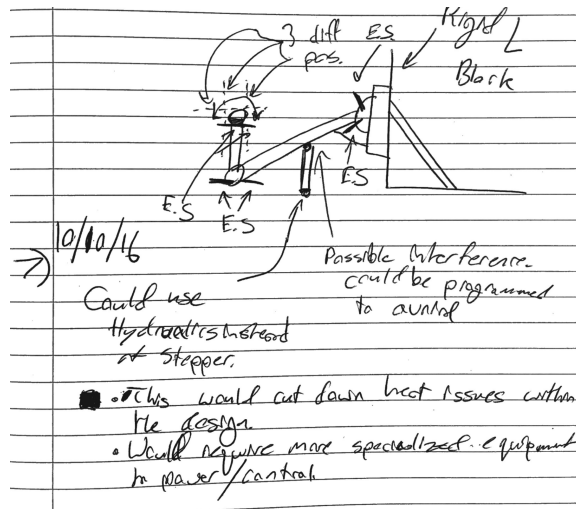 3 diff
pos.
E.S.
Right L
Block
E.S
E.S
E.S
10/10/16
Possible Interference.
could be programmed
to avoid
Could use
Hydraulics instead
of Stepper.
• This would cut down heat issues within
the design.
• Would require more specialized equipment
to power/control.